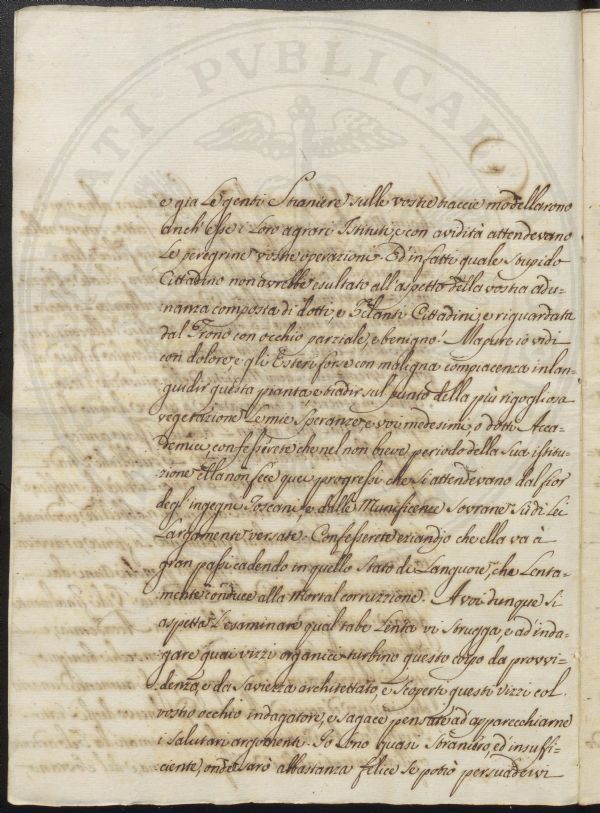 e già le genti Straniere sulle vostre traccie modellarono
anch'Esse i Loro agrarj Istituti, e con avidità attendevano
le peregrine vostre operazioni. Ed in fatti quale Stupido
Cittadino non avrebbe esultato all'aspetto della vostra adu-
nanza composta di dotti, e Zelanti Cittadini, e riguardata
dal Trono con occhio parziale, e benigno. Ma pure io vidi
con dolore, e gli Esteri forse con maligna compiacenza inlan-
guidir questa pianta, e tradir sul punto della più rigogliosa
vegetazione le mie Speranze, e voi medesimi, o dotti Acca-
demici, confesserete che nel non breve periodo della Sua istitu-
zione ella non fece quei progressi che si attendevano dal fior
degl'ingegni Toscani, e dalle Munificenze Sovrane Su di Lei
Largamente versate. Confesserete eziandio che ella va à
gran passi cadendo in quello Stato di Languore, che Lenta-
mente conduce alla mortal corruzzione. A voi dunque Si
aspetta L'esaminare qual tabe Lenta vi Strugga, e ad inda-
gare quai vizzi organici turbino questo corpo da provvi-
denza e da Saviezza architettato, e Scoperti questi vizzi col
vostro occhio indagatore, e sagace pensare ad apparecchiarne
i salutari argomenti. Io Sono quasi Straniero, ed insuffi-
ciente, onde sarò abbastanza felice se potrò persuadervi
PVBLICAE